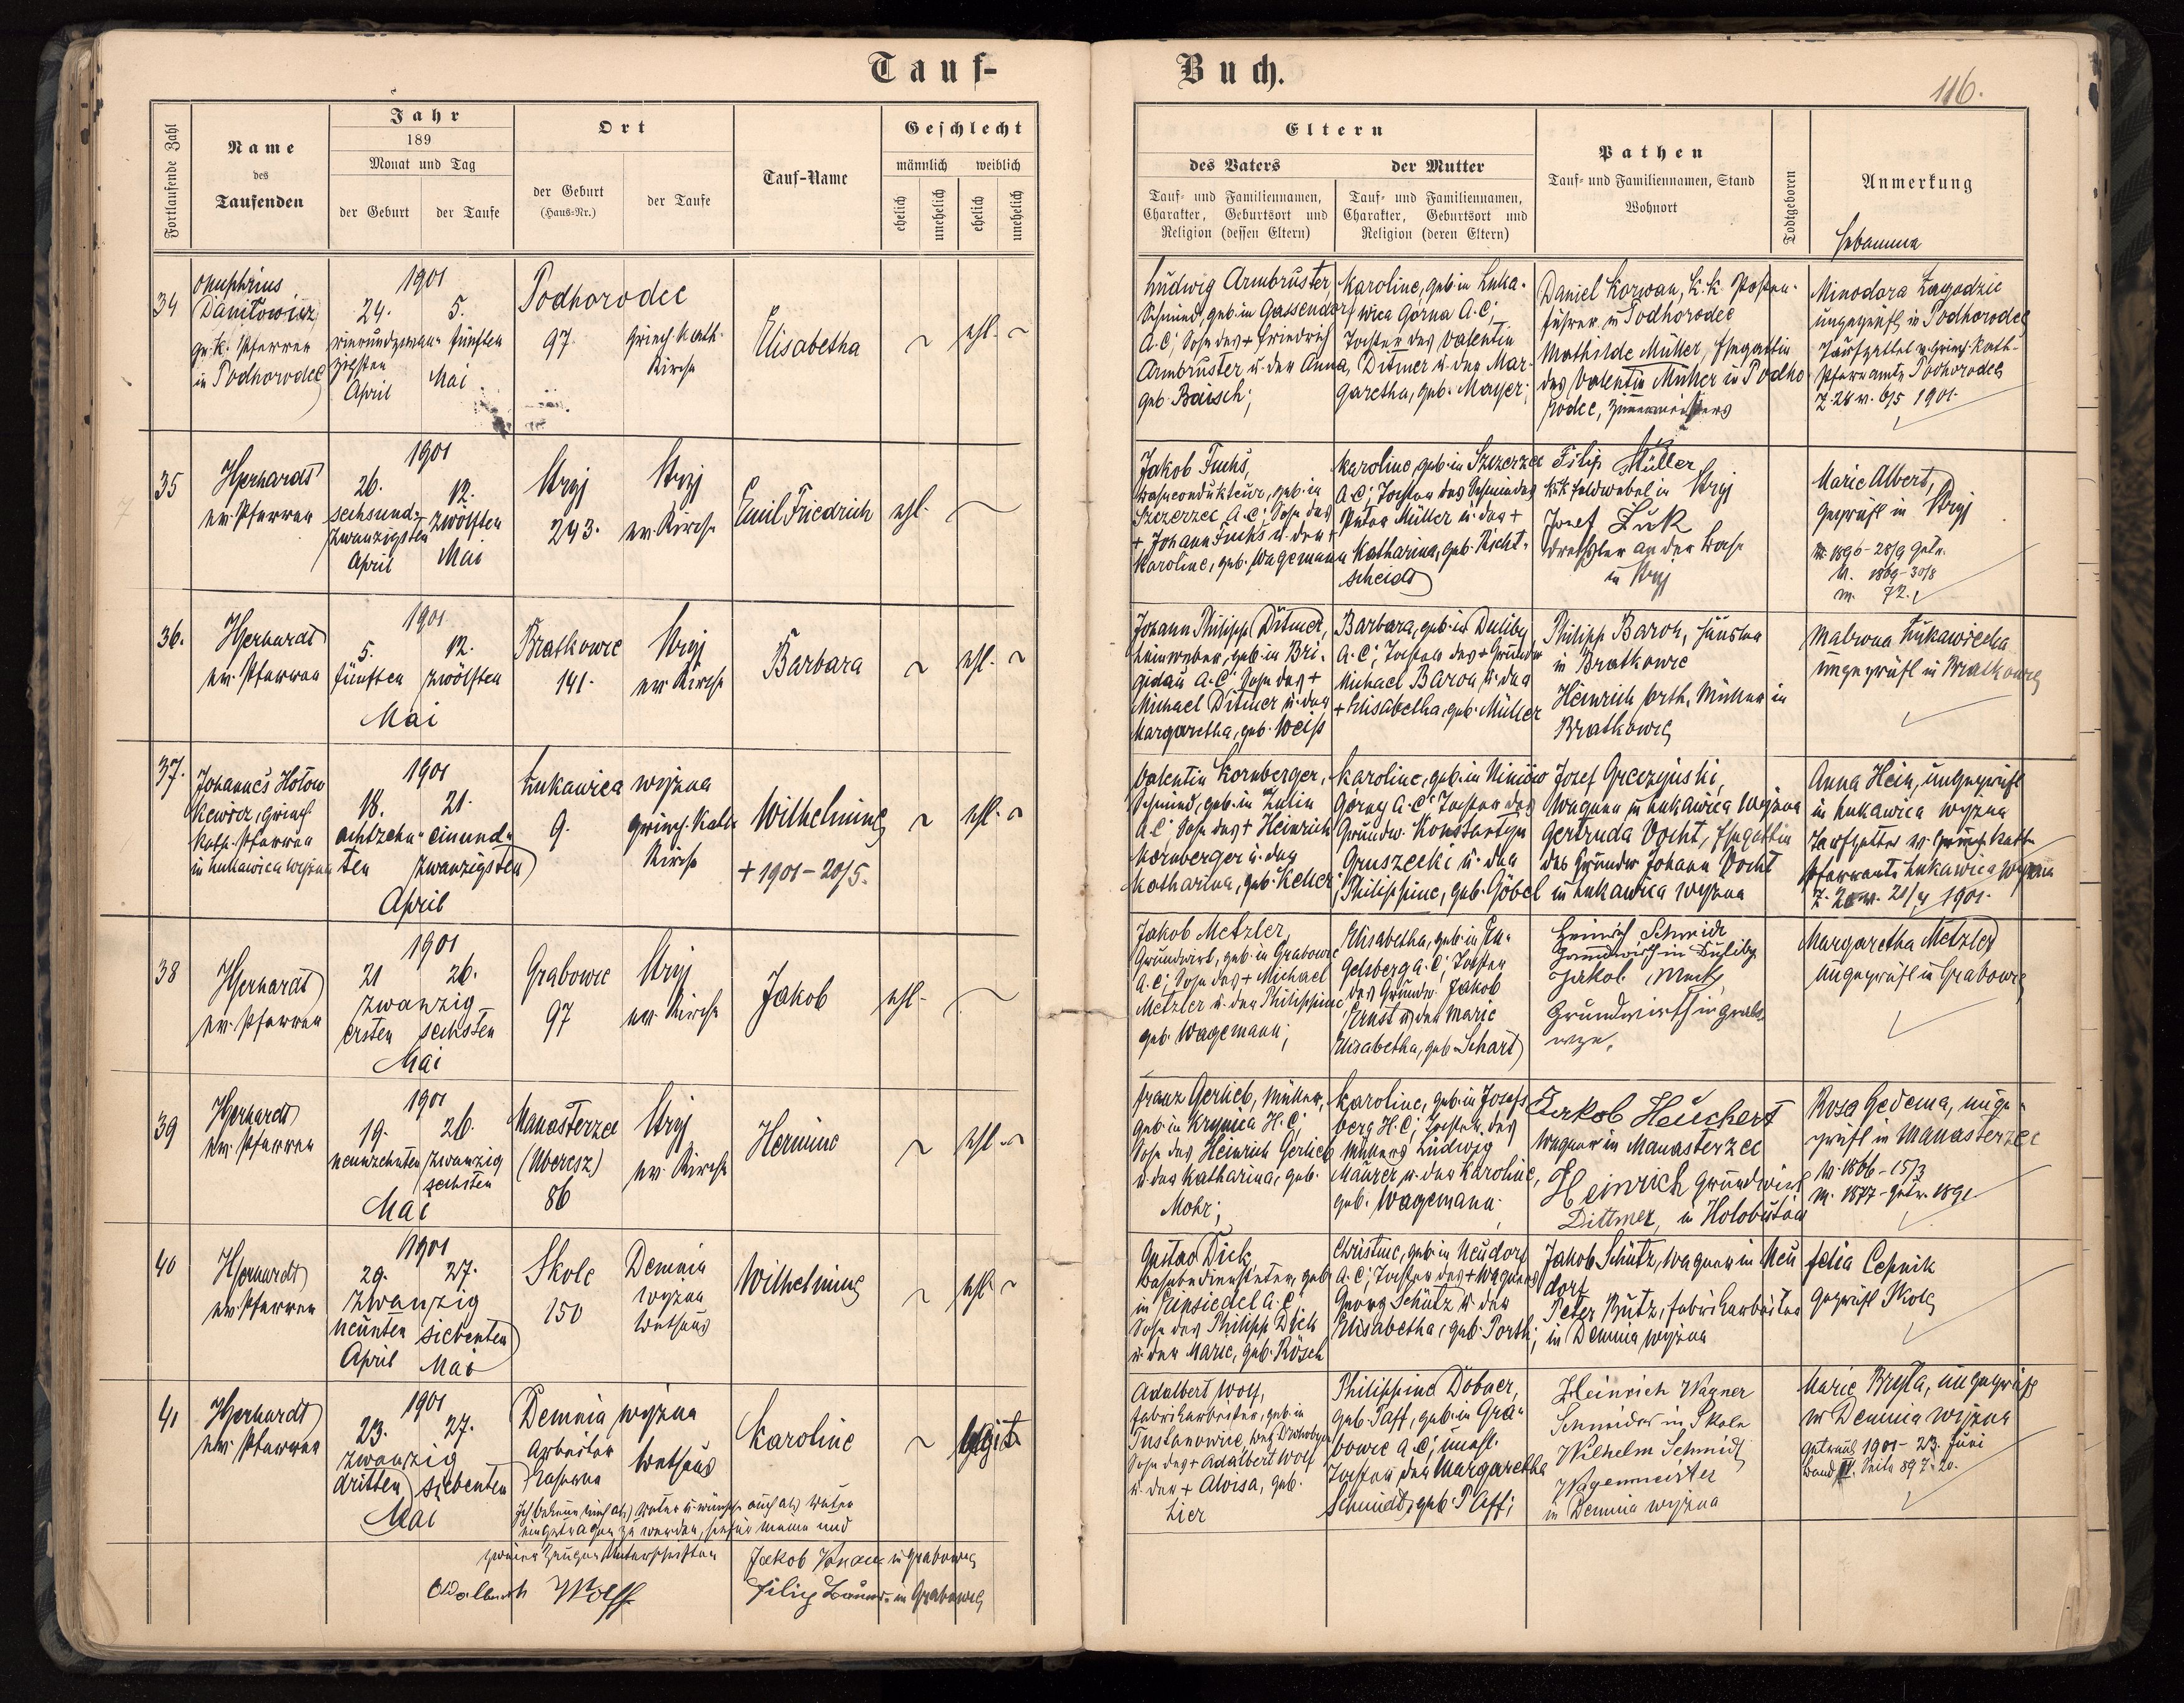 Tauf-
Buch.
116.
Fortlaufende Zahl
Name
des
Taufenden
Jahr
189
Monat und Tag
der Geburt
der Taufe
Ort
der Geburt
(Haus-Nr.)
der Taufe
Tauf-Name
Geschlecht
männlich
weiblich
ehelich
unehelich
ehelich
unehelich
Eltern
des Vaters
Tauf- und Familiennamen,
Charakter, Geburtsort und
Religion (dessen Eltern)
der Mutter
Tauf- und Familiennamen,
Charakter, Geburtsort und
Religion (deren Eltern)
Pathen
Tauf- und Familiennamen, Stand
Wohnort
Todtgeboren
Anmerkung
Hebamme
34
Onuphrius
Daniłowicz
gr. k. Pfarrer
in Podhorodec
1901
24. 5.
vierundzwan- fünften
zigsten
April Mai
Podhorodec
97. Griech. Kath.
Kirche
Elisabetha
ehl.
Ludwig Armbruster,
Schmied, geb. in Gassendorf
A. C; Sohn des + Friedrich
Armbruster u. der Anna,
geb. Baisch;
Karoline, geb. in Luka-
wica Gorna A. C;
Tochter des Valentin
Ditmer u. der Mar-
garetha, geb. Mayer;
Daniel Korwan, k. k. Posten-
führer in Podhorodec
Mathilde Müller, Ehegattin
des Valentin Müller in Podho
rodec, Zimmermeisters
Minodora Zagodzie
ungeprüft in Podhorodec
Taufzettel v. Griech. Kath.
Pfarramte Podhorodec
Z. 28 v. 6/5 1901.
35
Hgerhardt
ev. Pfarrer
1901
26. 12.
sechsund- zwölften
zwanzigsten
April Mai
Stryj Stryj
243. ev. Kirche
Emil Friedrich
ehl.
Jakob Fuchs,
Bahnconducteur, geb. in
Szczerzec A. C; Sohn des
+ Johann Fuchs u. der +
Karoline, geb. Wagemann
Karoline, geb. in Szczerzec
A. C; Tochter des Schmiedes
Peter Müller u. der +
Katharina, geb. Richt-
scheidt
Filip Müller
k u k Feldwebel in Stryj
Josef Luk
Drechsler an der Bahn
in Stryj
Marie Albert,
geprüft in Stryj
1896 - 28/9 getr.
V. 1869 - 30/8
M. 72.
36.
Hgerhardt
ev. Pfarrer
1901
5. 12.
fünften zwölften
Mai
Bratkowce Stryj
141. ev. Kirche
Barbara
ehl.
Johann Philipp Ditmer,
Leinweber, geb. in Bri-
gidau A. C; Sohn des +
Michael Ditmer u. der
Margaretha, geb. Weiss
Barbara, geb. in Duliby
A. C; Tochter des + Grundw
Michael Baron u. der
+ Elisabetha, geb. Müller
Philipp Baron, Häusler
in Bratkowce
Heinrich Orth, Müller in
Bratkowce
Malwna Łukawiecka
ungeprüft in Bratkowce
37.
Johannes Hołow
kewicz, Griech.
Kath. Pfarrer
in Lukawica Wyżna
1901
18. 21.
achtzehn- einund-
ten zwanzigsten
April
Łukawica wyżna
9. Griech. Kath.
Kirche
Wilhelmine
+ 1901 - 20/5.
ehl.
Valentin Kornberger,
Schmied, geb. in Lulin
A. C; Sohn des + Heinrich
Kornberger u. der
Katharina, geb. Keller;
Karoline, geb. in Winiów
Górny A. C; Tochter des
Grundw. Konstantyn
Gruszecki u. der
Philippine, geb. Göbel
Josef Greczyński,
Wagner in Lukawica Wyżna
Gertruda Vocht, Ehegattin
des Grundw Johann Vocht
in Lukawica Wyżna
Anna Hein, ungeprüft
in Lukawica Wyżna
Taufzettel v. Griech. Kath
Pfarramte Lukawica Wyżna
21/4 1901.
38
Hgerhardt
ev. Pfarrer
1901
21 26.
zwanzig
ersten sechsten
Mai
Grabowce Stryj
97 ev. Kirche
Jakob
ehl.
Jakob Metzler,
Grundwirt, geb. in Grabowce
A. C; Sohn des + Michael
Metzler u. der Philippine
geb. Wagemann;
Elisabetha, geb. in En-
gelsberg A. C; Tochter
des Grundw. Jakob
Ernst u. der Marie
Elisabetha, geb. Schart
Heinrich Schmidt
Grundwirth in Duliby
Jakob Muck
Grundwirth in Grabo
wce.
Margaretha Metzler
ungeprüft in Grabowce
39
Hgerhardt
ev. Pfarrer
1901
19. 26.
neunzehnten zwanzig
sechsten
Mai
Manasterzec Stryj
(Uberesz) ev. Kirche
86
Hermine
ehl.
Franz Gerlieb, Müller,
geb. in Krynica H. C;
Sohn des Heinrich Gerlieb
u. der Katharina, geb.
Mohr;
Karoline, geb. in Josefs
berg H. C; Tochter des
Müllers Ludwig
Maurer u. der Karoline,
geb. Wagemann.
Jakob Heuchert
Wagner in Manasterzec
Heinrich Grundwirt
Dittmer, in Holobutów
Rosa Gedema, unge-
prüft in Manasterzec
V. 1866 - 15/3
M. 1877 - getr. 1891
40
Hgerhardt
ev. Pfarrer
1901
29. 27.
zwanzig
neunten siebenten
April Mai
Skole Demnia
150 wyżna
Bethaus
Wilhelmine
ehl
Gustav Dick,
Bahnbediensteter, geb.
in Einsiedel A. C;
Sohn des Philipp Dick
u. der Marie, geb. Rösch
Christine, geb. in Neudorf
A. C; Tochter des + Wagners
Georg Schütz u. der
Elisabetha, geb. Porth;
Jakob Schütz, Wagner in Neu
dorf
Peter Butz, Fabriksarbeiter
in Demnia wyżna
Felia Cepnik
geprüft Skole
41
Hgerhardt
ev. Pfarrer
1901
23. 27.
zwanzig
dritten siebenten
Mai
Demnia wyżna
Arbeiter Bethaus
Kaserne
Karoline
legit.
Ich bekenne mich als Vater u. wünsche auch als Vater
eingetragen zu werden, hiefür meine und
zweier Zeugen Unterschriften
Adalbert Wolff
Jakob Konau in Grabowce
Filip in Grabowce
Adalbert Wolf,
Fabriksarbeiter, geb. in
Tustanowice, Bez. Drohobycz
Sohn des + Adalbert Wolf
u. der + Aloisa, geb.
Lier
Philippine Dobner,
geb. Paff, geb. in Gra-
bowce A. C; unehl.
Tochter der Margaretha
Schmidt, geb. Paff;
Heinrich Wagner
Schneider in Skole
Wilhelm Schmidt
Wagenmeister
in Demnia wyżna
Marie Bryła, ungeprüft
in Demnia wyżna
Getraut 1901 - 23. Juni
Band II. Seite 89 Z. 20.